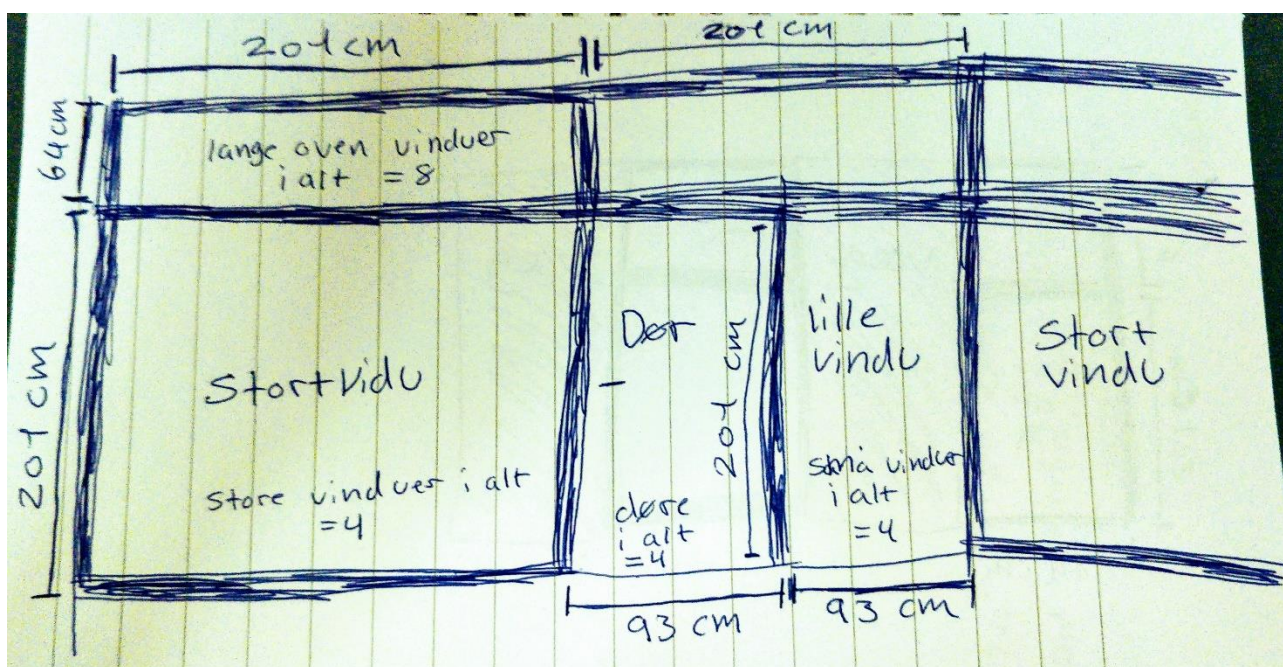 201 cm
201 cm
64cm
lange oven vinduer
i alt = 8
201 cm
Stort vidu
store vinduer i alt
=4
Dør
døre
i alt
=4
201 cm
lille
vindu
små vinduer
i alt
=4
Stort
vindu
93 cm
93 cm